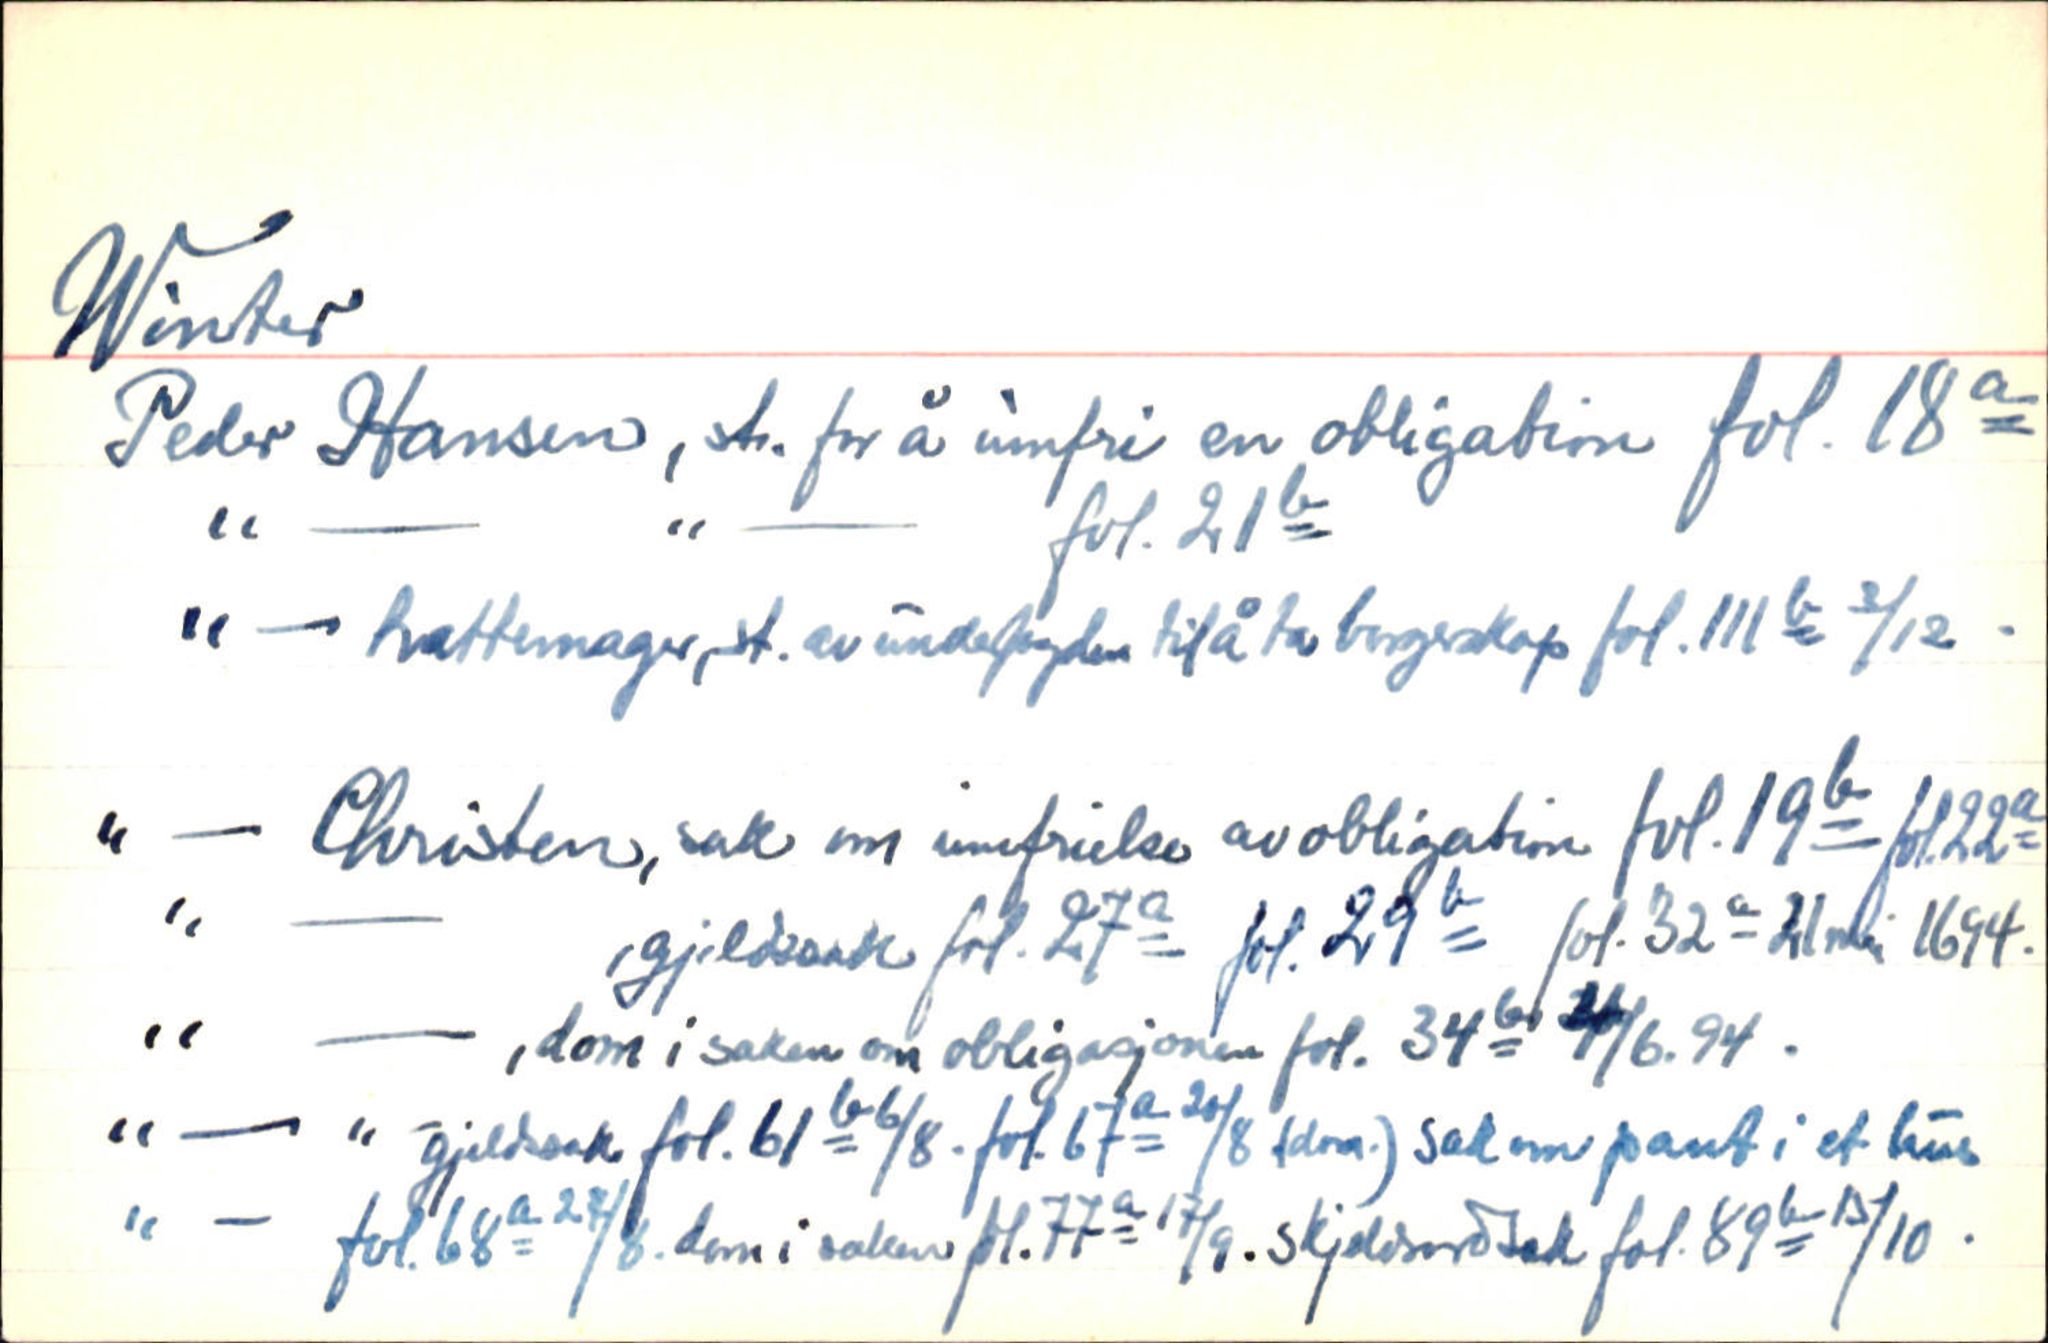 Winter
Peder Hansen, st. for å innfri en obligation fol. 18a
" — " — fol. 21b
" — hattemager, st. av underfogden til å ta borgerskap fol. 111b 3/12 .
" — Christen, sak om innfrielse av obligation fol. 19b fol. 22a
" — , gjeldssak fol. 27a fol. 29b fol. 32a 21 mai 1694.
" — , dom i saken om obligasjonen fol. 34b /6. 94 .
" — " gjeldssak fol. 61b 6/8 . fol. 67a 20/8 (dom.) sak om pant i et hus
" — fol. 68a 27/8 . dom i saken fol. 77a 17/9 . skjeldsordsak fol. 89b 15/10 .